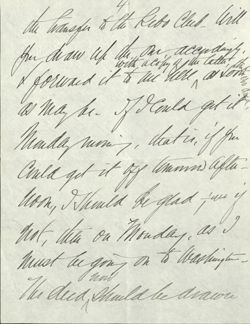 4
the transfer to the Robo Club. Will
you draw up the one, accordingly,
with a copy of the letter
& forward it to me here, as soon
as may be. If I could get it
Monday morn'g, that is, if you
could get it off tomorrow after-
noon, I should be glad, – if
not, then on Monday, as I
must be going on to Washington –
The deed should not be drawn